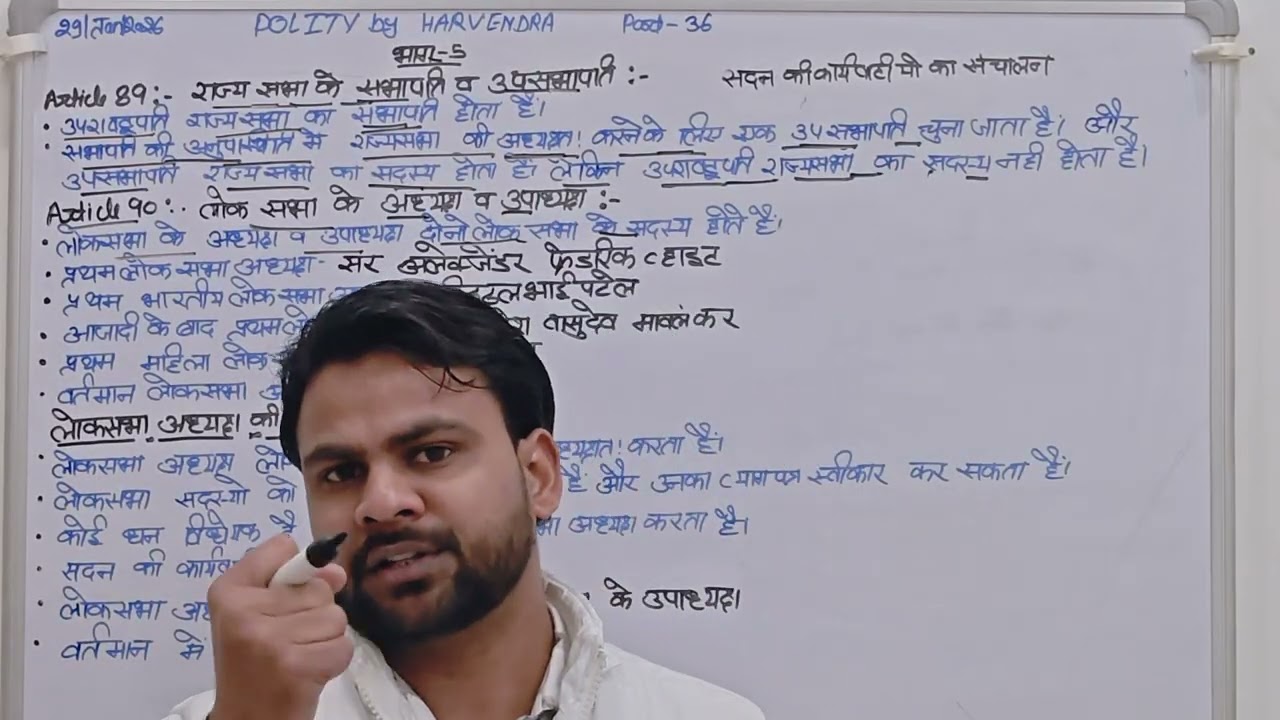 29/Jan2026 POLITY by HARVENDRA Part-36
भाग-5
Article 89:- राज्य सभा के सभापति व उपसभापति :- सदन की कार्यवाहीयो का संचालन
• उपराष्ट्रपति राज्य सभा का सभापति होता है।
• सभापति की अनुपस्थिति में राज्यसभा की अध्यक्षता करने के लिए एक उपसभापति चुना जाता है। और
उपसभापति राज्य सभा का सदस्य होता है। लेकिन उपराष्ट्रपति राज्यसभा का सदस्य नही होता है।
Article 90:- लोक सभा के अध्यक्ष व उपाध्यक्ष :-
• लोकसभा के अध्यक्ष व उपाध्यक्ष दोनो लोक सभा के सदस्य होते हैं।
• प्रथम लोक सभा अध्यक्ष - सर अलेक्जेंडर फ्रेडरिक व्हाइट
• प्रथम भारतीय लोक सभा ट्ठलभाई पटेल
• आजादी के बाद प्रथम लो वासुदेव मावलंकर
• प्रथम महिला लोक
• वर्तमान लोकसभा अ
लोकसभा अध्यक्ष की
• लोकसभा अध्यक्ष लो ध्यक्षता करता है।
• लोकसभा सदस्यो को हैं और उनका त्यागपत्र स्वीकार कर सकता है।
• कोई धन विधेयक है भा अध्यक्ष करता है।
• सदन की कार्यव
• लोकसभा अध के उपाध्यक्ष।
• वर्तमान में